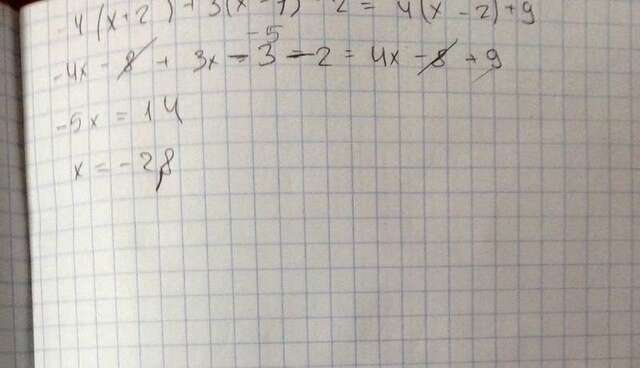 -4(x+2) + 3(x-1) - 2 = 4(x-2)+9
-5
-4x - 8 + 3x - 3 - 2 = 4x - 8 + 9
-5x = 14
x = -2,8